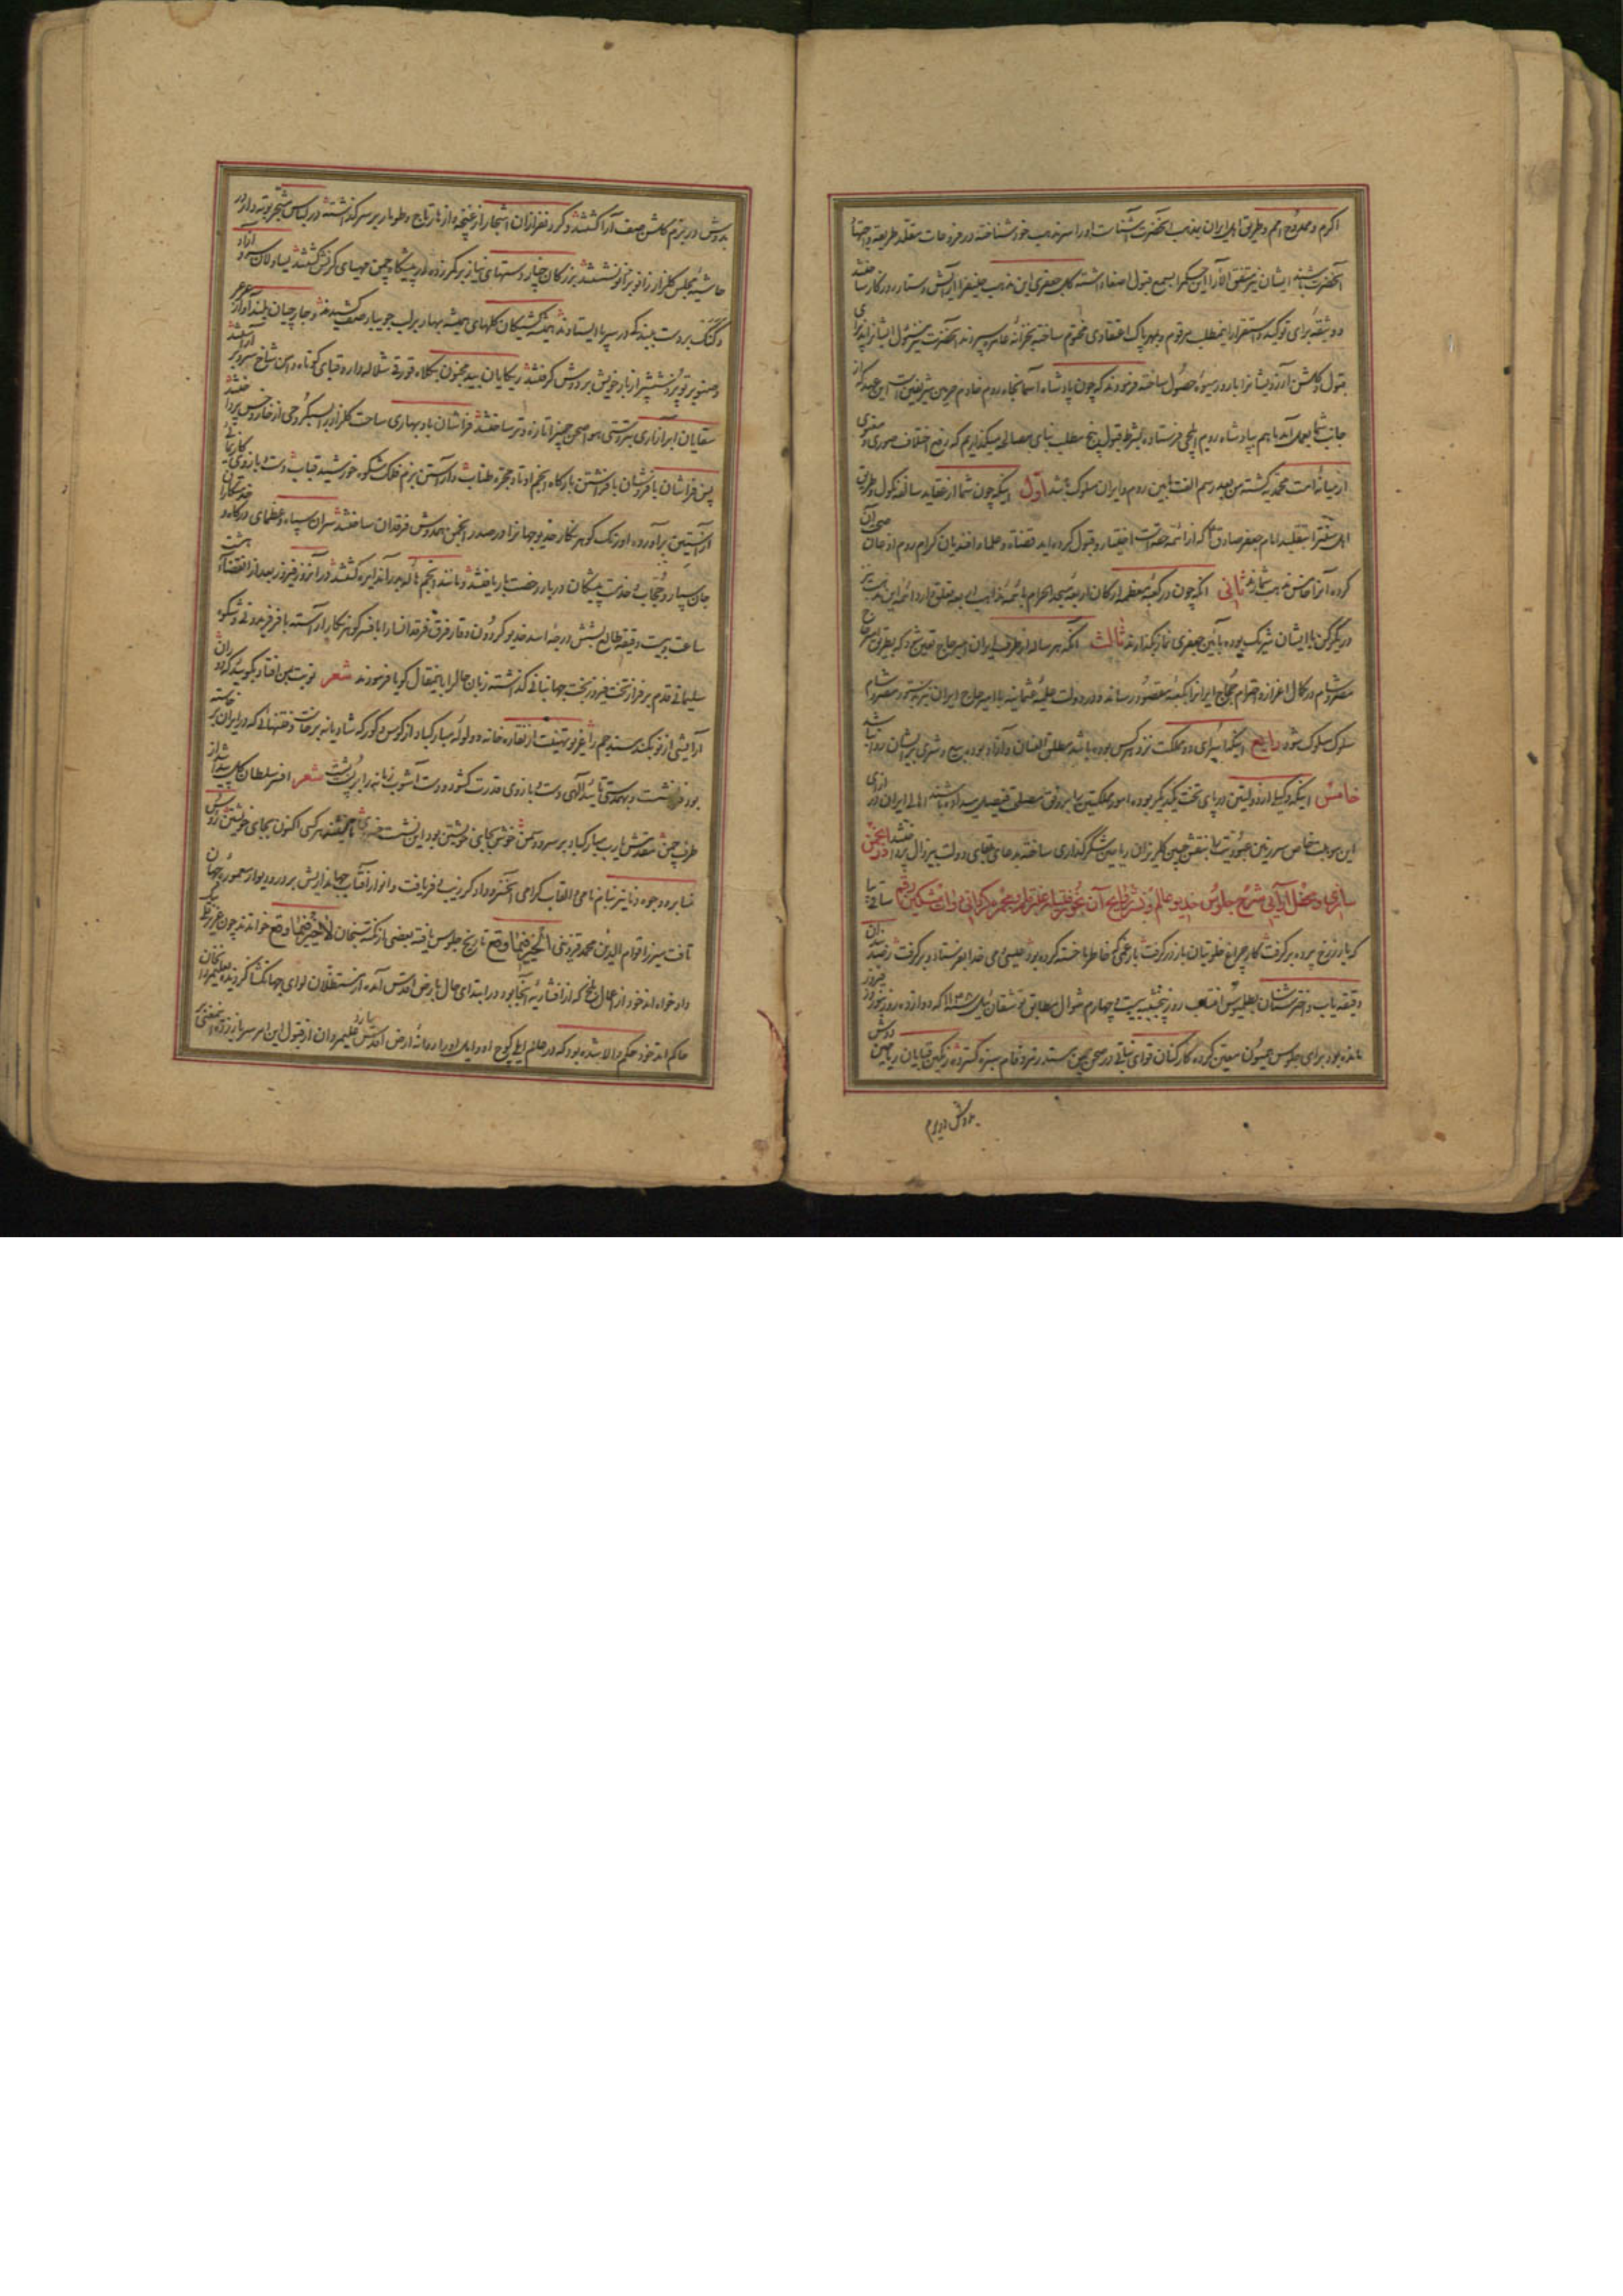 اکرم و ممدوح امم و طریق اهل ایران بمذهب آنحضرت آشناست او را سر مذهب خود شناخته در فروعات مقلد طریقه و اجتهاد
آنحضرت باشند ایشان نیز متفق الآرا این حکم را بسمع قبول اصغا داشته کلاه جعفری این مذهب حنیف را آرایش دستار روزگار ساختند
و وثیقه برای توکید و استقرار اینمطلب مرقوم و بمهر پاک اعتقادی مختوم ساخته بخزانه عامره سپردند آنحضرت نیز مسئول ایشانرا پذیرای
قبول و گلشن آرزویشانرا بارور میوه حصول ساخته فرمودند که چون پادشاه آسمانجاه روم خادم حرمین شریفین است این عهد که از
جانب شما بعمل آمد ما هم بپادشاه روم ایلچی فرستاده بشرط قبول پنج مطلب بنای مصالحه میگذاریم که رفع اختلاف صوری و معنوی
از میانه امت محمدیه گشته من بعد رسم الفت مابین روم و ایران مسلوک باشد اول اینکه چون شما از عقاید سالفه نکول و طریق
اهل سنت را بتقلید امام جعفر صادق که از ائمه حقه است اختیار و قبول کرده اید قضاة و علما و افندیان کرام روم اذعان صحت آن
کرده آنرا خامس مذاهب شمارند ثانی آنکه چون در کعبه معظمه ارکان اربعه مسجد الحرام بائمه مذاهب اربعه تعلق دارد ائمه این مذهب نیز
در یک رکن با ایشان شریک بوده بآئین جعفری نماز بگذارند ثالث آنکه هر ساله از طرف ایران امیر حاج تعیین شود که بطریق امیر حاج
مصر و شام در کمال اعزاز و احترام حجاج ایرانرا بکعبه مقصود رساند و در دولت علیه عثمانیه با امیر حاج ایران نیز بدستور مصر و شام
سلوک مسلوک شود رابع اینکه اسرای دو مملکت نزد هر کس بوده باشد مطلق العنان و آزاد بوده بیع و شری بر ایشان روا نباشد
خامس اینکه وکیلی از دولتین در پای تخت یکدیگر بوده امور مملکتین را بر وفق مصلحت فیصل میداده باشند اهالی ایران در ازای
این موهبت خاص سر زمین عبودیت را بنقش جبین گلریزان ریاحین شکرگذاری ساخته بدعای بقای دولت بیزوال پرداختند در انجمن
سازی و محفل آرایی شرح جلوس خدیو عالم و نشر روایح آن بخور غنبر از مجمر مکرانی دوات مشکین رقم ساقی بیا
که یار ز رخ پرده بر گرفت کار چراغ خلوتیان باز در گرفت بار غمی که خاطر ما خسته کرده بود عیسی دمی خدا بفرستاد و بر گرفت رصدبندان
دقیقه یاب و اختر شناسان بطلمیوس انتساب روز پنجشنبه بیست و چهارم شوال مطابق توشقان ئیل سنه ۱۱۴۸ که دوازده روز بنوروز فیروز
مانده بود برای جلوس میمون معین کرده کارکنان قوای نباتی در صحن چمن مسند زمرد فام سبزه گسترده رنگین قبایان ریاحین دوش
بدوش در بزم
بدوش در بزم گلشن صف آرا گشتند و گردنفرازان اشجار از غنچه و ازهار تاج و طومار بر سر گذاشته در لباس شجر بوته دار در
حاشیه مجلس گلزار زانو بر زانو نشستند بزرگان چنار دستهای نیاز بر کمر زده در پیشگاه چمن مهیای کرنش گشتند یساولان سرو آزاد
و کنک بر دست بید مله در سر پا ایستادند همیشه کشیکان گلهای همیشه بهار بر لب جویبار صف کشیدند و جارچیان بلند آواز عرعر
و صنوبر تبر و شش پر از بار خویش بر دوش گرفتند ریکایان بید مجنون بکلاه قورقی شلاله دار و قبای کوتاه دامن شاخ سر و بر آراستند
سقایان ابر آزاری بتردستی هوا صحن چمنرا تازه و تر ساختند فراشان باد بهاری ساحت گلزار را بسبکروحی از خار و خس پرداختند
پس فراشان با فر و شان بافراشتن بارگاه انجم اوتاد مجره طناب و آراستن بزم فلک شکوه خورشید قباب دست و بازوی کاردانی
از آستین برآورده اورنگ گوهر نگار خدیو جهانرا در صدر انجمن همدوش فرقدان ساختند سران سپاه و عظمای درگاه و خدمتکاران
جان سپار و حجاب و خدمت پیشگان دربار رخصت بار یافتند و مانند انجم هاله بدر آسا دایره گشتند و در آنروز فیروز بعد از انقضای هشت
ساعت و بیست دقیقه طالع بشش درجه اسد خدیو گردون وقار فرق فرقدانسا را بافسر گوهر نگار آراسته با فر فریدونی و شکوه
سلیمانی قدم بر فراز تخت فیروز بخت جهانبانی گذاشته زبان حال را باینمقال گویا فرمودند شعر نوبت بمن افتاد بگویید که دوران
آرایشی از نو بکند مسند جم را غریو تهنیت از نقاره خانه و ولوله مبارکباد از کوس و گورکه شادیانه برخاست و فتنهائی که در ایران برخاسته
بود فرو نشست و بهمدستی تأیید آلهی دست و بازوی قدرت گشوده دست آشوب زمانه را بر پشت بست شعر افسر سلطان گل پیدا شد از
طرف چمن مقدمش یا رب مبارکباد بر سرو و سمن خوش بجای خویشتن بود این نشست خسروی تا نشیند هر کسی اکنون بجای خویشتن رؤس
منابر و وجوه دنانیر بنام نامی و القاب گرامی آنخسرو دادگر زیب و فر یافت و انوار آفتاب جهانداریش بر در و دیوار معموره جهان
تافت میرزا قوام الدین محمد قزوینی الخیر فیما وقع تاریخ جلوس یافته بعضی از نکته سنجان لا خیر فیما وقع خواندند چون
داد خواه اند خود از اعمال بلخ که از افشاریه آنجا بود در ابتدای حال بعرض اقدس آمده از مستظلان لوای جهانگشا گردیده
حاکم اند خود حکم والا شده بود که در عالم ایلی کوچ او و ایل او را روانه ارض اقدس سازد علیمردان از قبول این امر سر باز زده اینمعنی